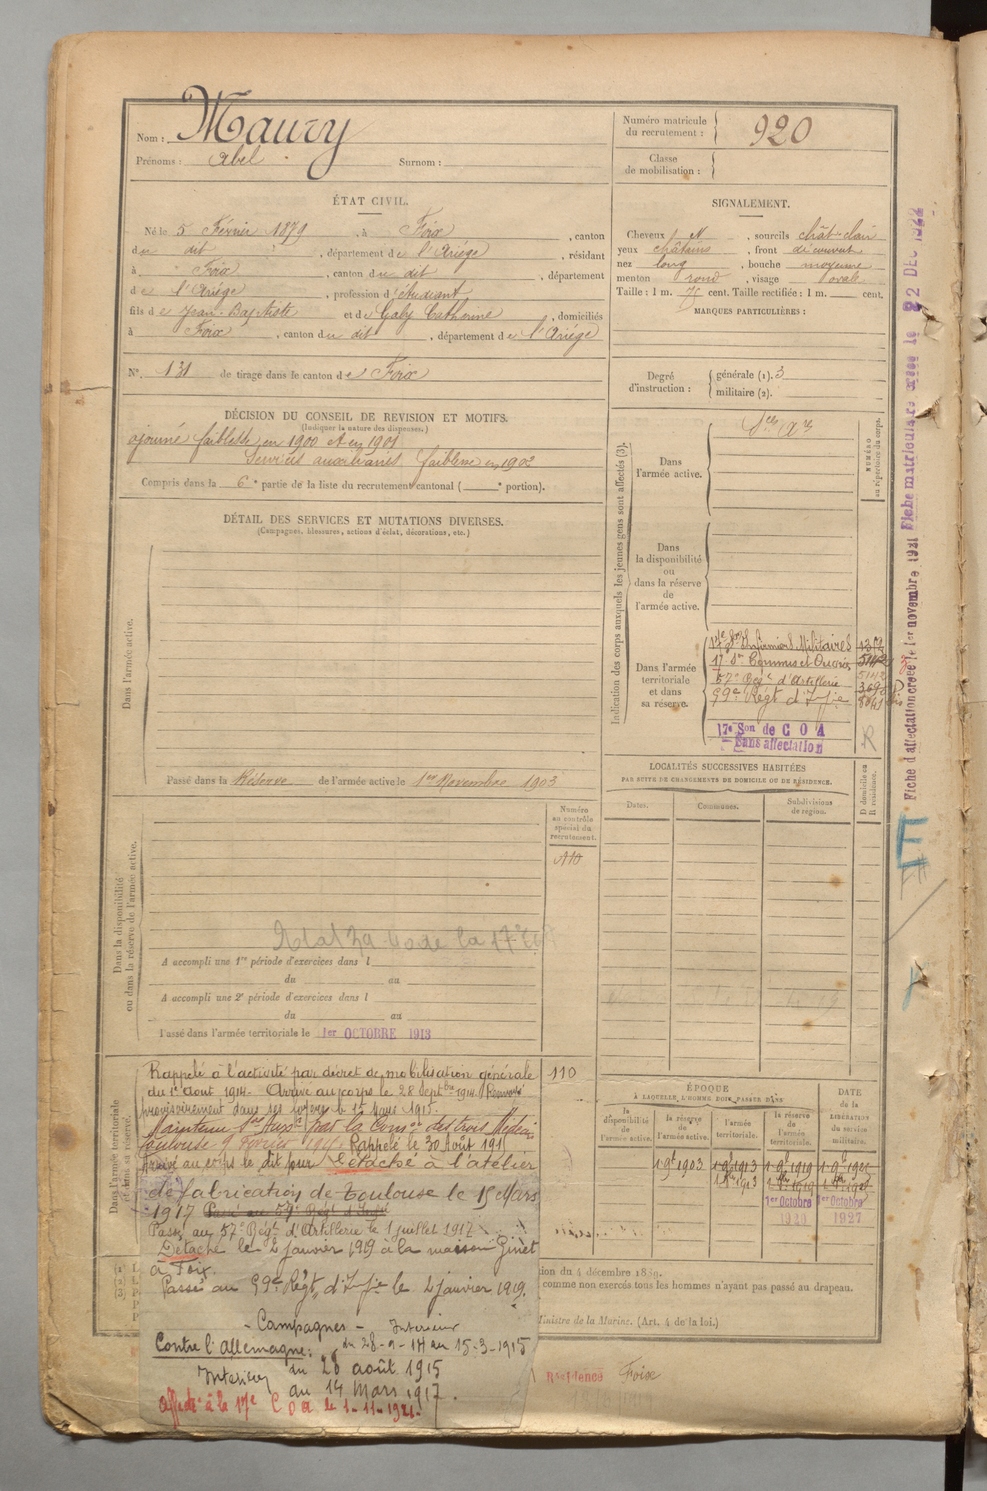 Nom : Maury
Prénoms : Abel Surnom :
Numéro matricule du recrutement : 920
Classe de mobilisation :
ÉTAT CIVIL.
Né le 5 Février 1879, à Foix, canton
du dit, département de l'Ariége, résidant
à Foix, canton du dit, département
de l'Ariége, profession d'étudiant
fils de Jean-Baptiste et de Gaby Catherine, domiciliés
à Foix, canton du dit, département de l'Ariége
N° 131 de tirage dans le canton de Foix
SIGNALEMENT.
Cheveux N, sourcils chât-clair
yeux châtains, front découvert
nez long, bouche moyenne
menton rond, visage ovale
Taille : 1 m. 75 cent. Taille rectifiée : 1 m. cent.
MARQUES PARTICULIÈRES :
Degré d'instruction : générale (1). 3
militaire (2).
DÉCISION DU CONSEIL DE REVISION ET MOTIFS.
(Indiquer la nature des dispenses.)
ajourné faiblesse en 1900 et en 1901
Services auxiliaires faiblesse en 1902
Compris dans la 6e partie de la liste du recrutement cantonal ( e portion).
DÉTAIL DES SERVICES ET MUTATIONS DIVERSES.
(Campagnes, blessures, actions d'éclat, décorations, etc.)
Dans l'armée active.
Passé dans la Réserve de l'armée active le 1er Novembre 1903
Indication des corps auxquels les jeunes gens sont affectés (3).
NUMÉRO au répertoire du corps.
Dans l'armée active.
Dans la disponibilité ou dans la réserve de l'armée active.
Dans l'armée territoriale et dans sa réserve.
Infirmiers Militaires
17 Son Commis et Ouvriers
57e Régt d'Artillerie
59e Régt d'Ifie
17e Son de C O A
Sans affectation
R
Fiche d'affectation créée le 1er novembre 1921 Fiche matriculaire créée le 22 DEC 1922
LOCALITÉS SUCCESSIVES HABITÉES
PAR SUITE DE CHANGEMENTS DE DOMICILE OU DE RÉSIDENCE.
Dates. Communes. Subdivisions de région. D domicile ou R résidence.
Numéro au contrôle spécial du recrutement.
110
Dans la disponibilité ou dans la réserve de l'armée active.
A accompli une 1re période d'exercices dans l
du au
A accompli une 2e période d'exercices dans l
du au
Passé dans l'armée territoriale le 1er OCTOBRE 1913
Dans l'armée territoriale et dans sa réserve.
Rappelé à l'activité par décret de mobilisation générale
du 1er aout 1914. Arrivé au corps le 28 Septbre 1914. Renvoyé
provisoirement dans ses foyers le 15 mars 1915.
Maintenu Ser Auxre par la Comon des trois Médecins
Toulouse 9 Février 1915. Rappelé le 30 Août 191
Arrivé au corps le dit jour Détaché à l'atelier
de fabrication de Toulouse le 15 Mars
1917
Passé au 57e Régt d'Artillerie le 1 juillet 1917
Détaché le 2 janvier 1919 à la maison Ginèt
à Foix.
Passé au 59e Régt d'Ifie le 2 janvier 1919.
- Campagnes -
Contre l'Allemagne : Intérieur du 28-9-14 au 15-3-1915
Intérieur du 28 août 1915
au 14 Mars 1917.
affecté à la 17e C O A le 1-11-1921.
110
ÉPOQUE
A LAQUELLE L'HOMME DOIT PASSER DANS
la disponibilité de l'armée active.
la réserve de l'armée active.
l'armée territoriale.
la réserve de l'armée territoriale.
DATE de la LIBÉRATION du service militaire.
1-9-1903
1er Octobre 1er Octobre
1920 1927
tion du 4 décembre 1889.
comme non exercés tous les hommes n'ayant pas passé au drapeau.
Ministre de la Marine. (Art. 4 de la loi.)
Résidence Foix